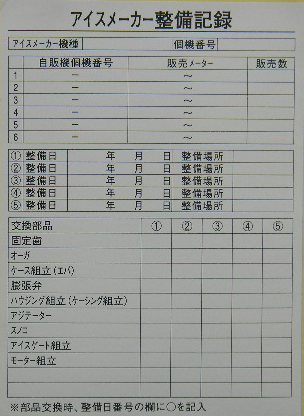 アイスメーカー整備記録
アイスメーカー機種 個機番号
自販機個機番号 販売メーター 販売数
1 － ～
2 － ～
3 － ～
4 － ～
5 － ～
6 － ～
① 整備日 年 月 日 整備場所
② 整備日 年 月 日 整備場所
③ 整備日 年 月 日 整備場所
④ 整備日 年 月 日 整備場所
⑤ 整備日 年 月 日 整備場所
交換部品 ① ② ③ ④ ⑤
固定歯
オーガ
ケース組立(エバ)
膨張弁
ハウジング組立(ケーシング組立)
アジテーター
スノコ
アイスゲート組立
モーター組立
※部品交換時、整備日番号の欄に○を記入